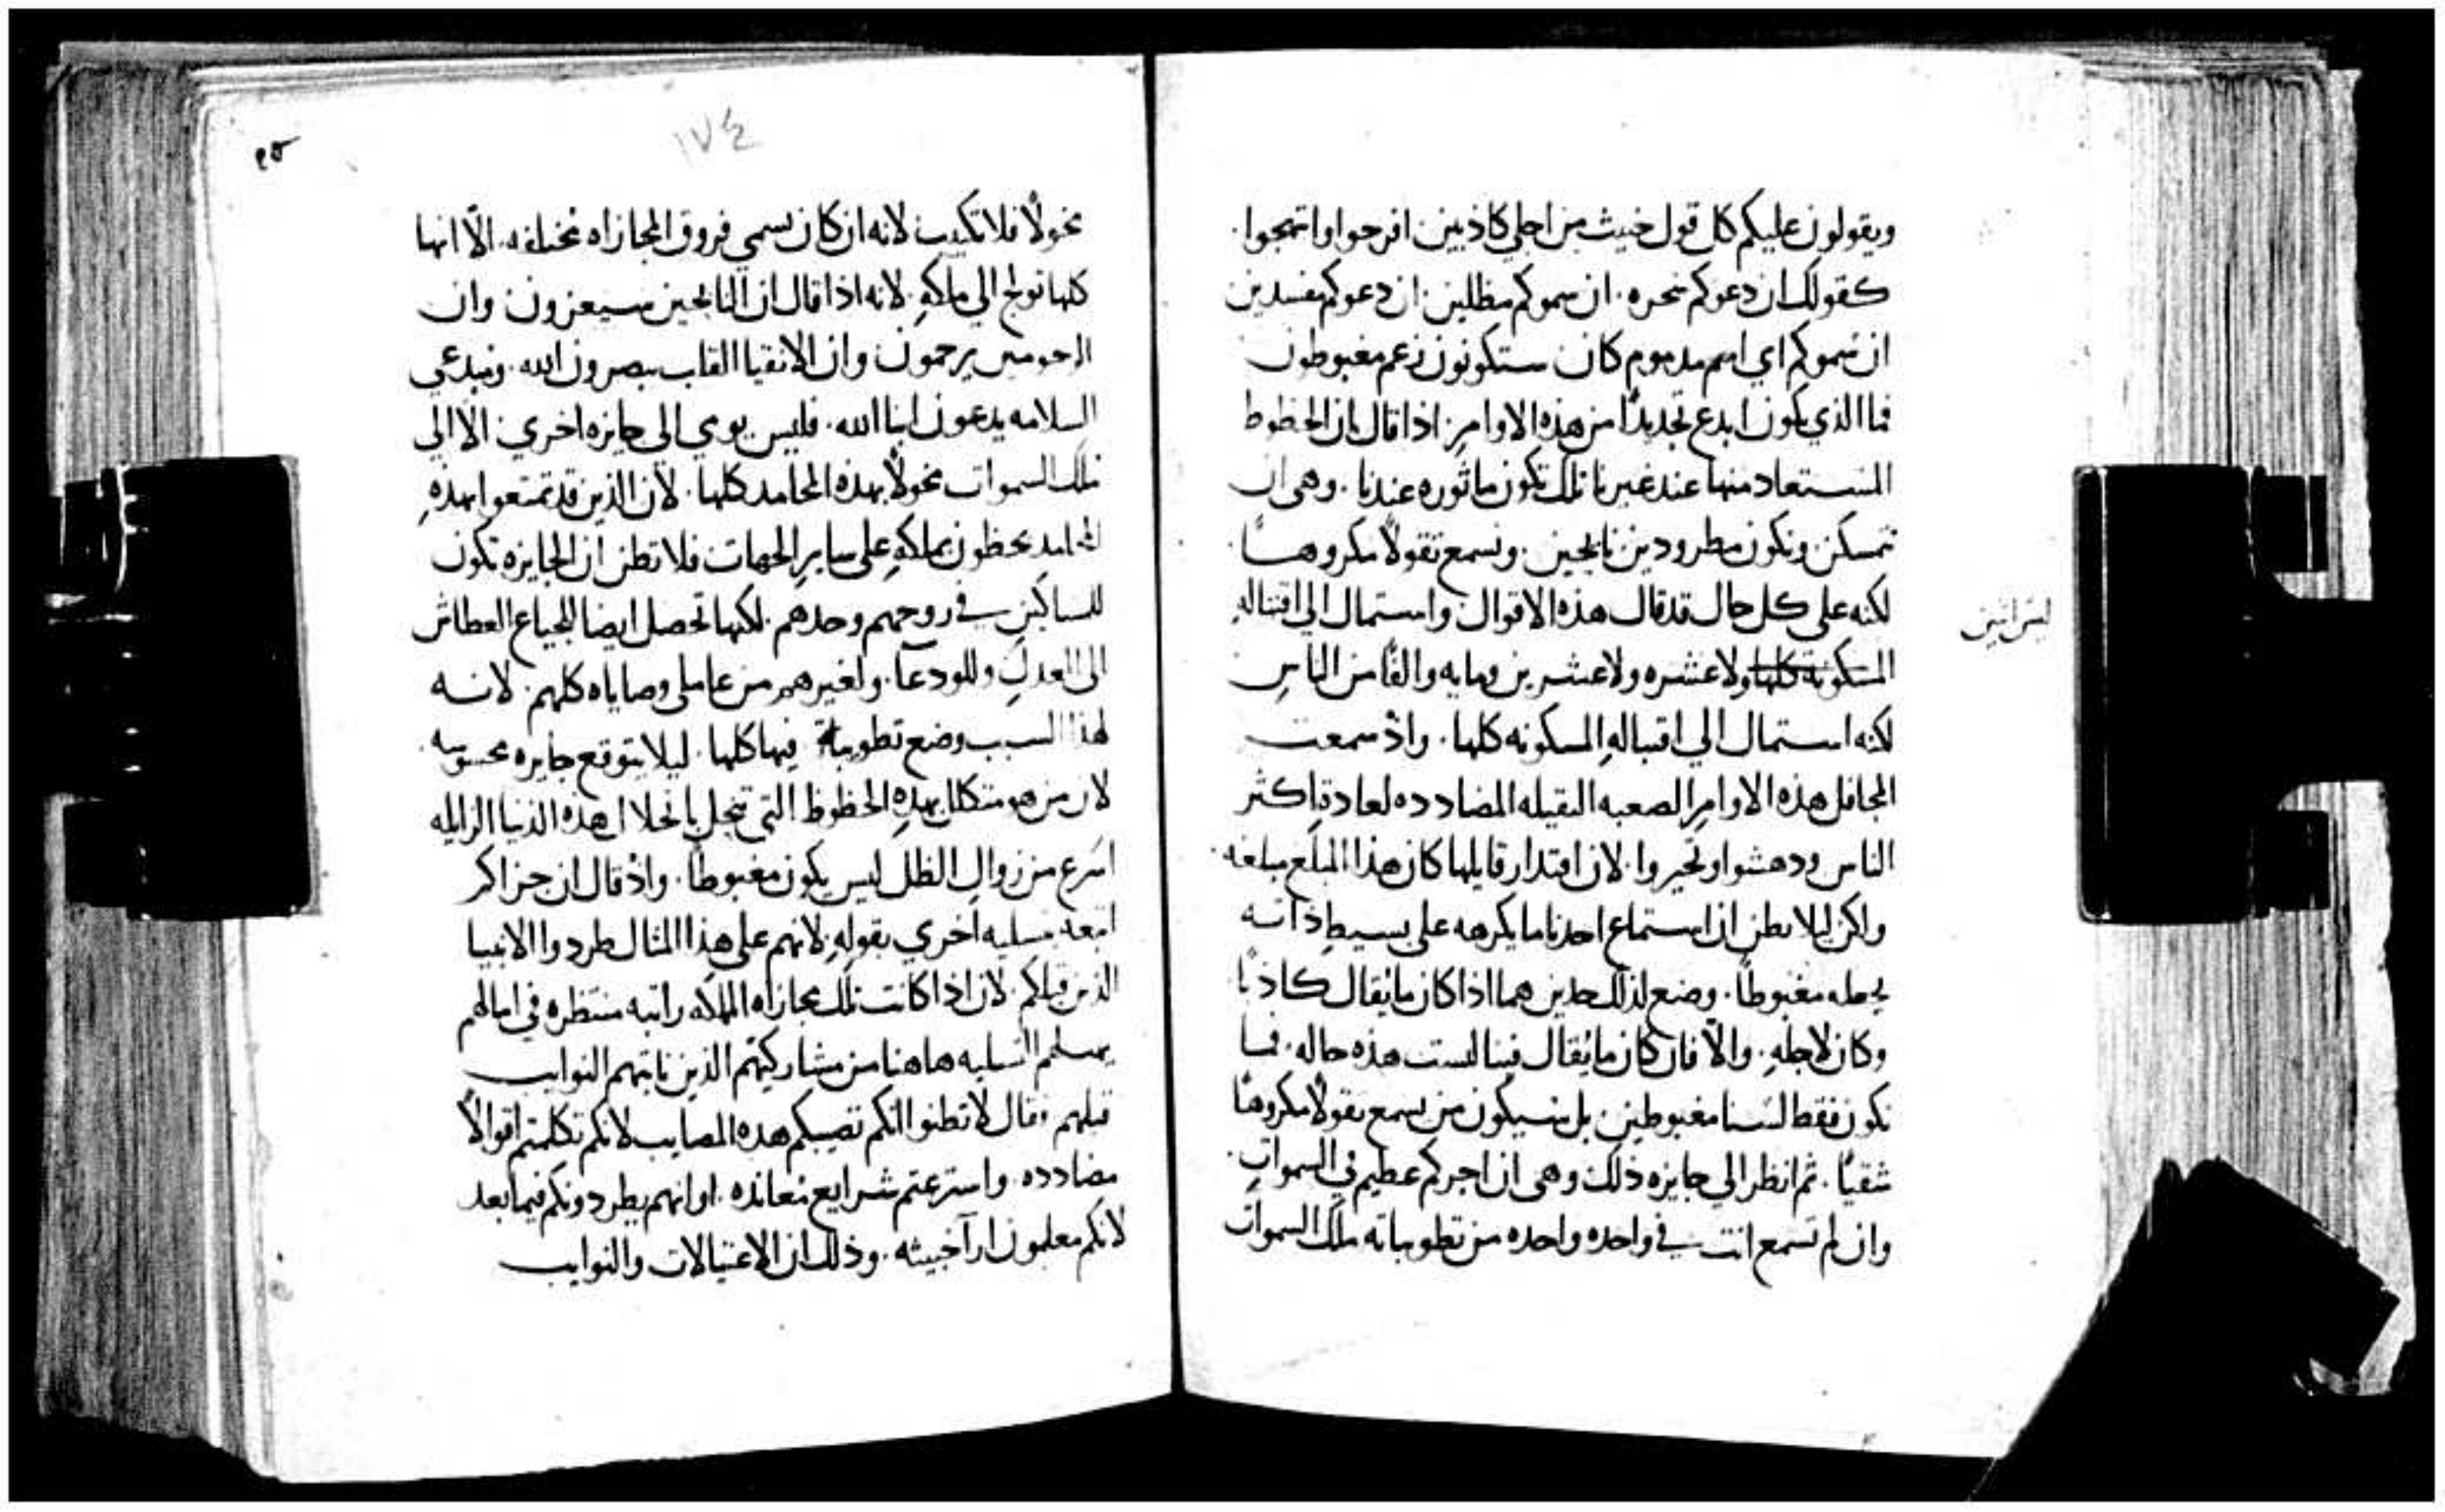 ويقولون عليكم كل قول خبيث من اجلي كاذبين افرحوا وابتهجوا.
كقولك ان دعوكم سحره. ان سموكم مظلين. ان دعوكم مفسدين
ان سموكم اي اسم مدموم كان ستكونون زعم مغبوطون
فما الذي يكون ابدع تجديدًا من هذه الاوامر. اذا قال بان الحظوظ
المستعاد منها عند غيرنا تلك تكون ماثوره عندنا. وهي ان
نتمسكن ونكون مطرودين نايحين. ونسمع تقولًا مكروهًا
لكنه على كل حال قد قال هذه الاقوال واستمال الي اقتباله
ليس اثنين
المسكونة كلها ولا عشره ولا عشرين ومايه والفًا من الناس
لكنه استمال الي اقتباله المسكونه كلها. واذ سمعت
المحافل هذه الاوامر الصعبه الثقيله المضادده لعادة اكثر
الناس ودهشوا وتحيروا. لان اقتدار قايلها كان هذا المبلغ مبلغه
ولكن ليلا يظن ان استماع احدنا ما يكرهه على بسيط ذاته
يجعله مغبوطًا. وضع لذلك حدين هما اذا كان ما يُقال كاذبًا
وكان لاجله. والّا فان كان ما يُقال فينا ليست هذه حاله. فما
نكون فقط لسنا مغبوطين بل سيكون من يسمع تقولًا مكروهًا
شقيًا. ثم انظر الي جايزه ذلك وهي ان اجركم عظيم في السموات.
وان لم تسمع انت في واحده واحده من تطويباته ملك السموات
١٧٤
مخولًا فلا تكتيب لانه ان كان سمي فروق المجازاه مختلفه. الّا انها
كلها تولج الي ملكه. لانه اذا قال ان النايحين سيعزون وان
الرحومين يرحمون وان الانقيا القلب يبصرون الله. ومبدعي
السلامه يدعون ابنا الله. فليس يومي الي جايزه اخري الا الي
ملك السموات مخولًا بهذه المحامد كلها. لان الذين قد تمتعوا بهذه
المحامد يحظون بملكه على ساير الجهات فلا تظن ان الجايزه تكون
للمساكين في روحهم وحدهم. لكنها تحصل ايضا للجياع العطاش
الى العدل وللودعا. ولغيرهم من عاملي وصاياه كلهم. لانه
لهذا السبب وضع تطويباة فيها كلها. ليلا يتوقع جايزه محسوسه
لان من هو متكلل بهذه الحظوظ التي تنحل بانحلال هذه الدنيا الزايله
اسرع من زوال الظل ليس يكون مغبوطًا. واذ قال ان جزاكم
اتبعه تسليه اخري بقوله لانهم على هذا المثال طردوا الانبيا
الذين قبلكم. لان اذا كانت تلك مجازاه الملكه راتبه منتظره في امالهم
التسليه هاهنا من مشاركتهم الذين نابتهم النوايب
قبلهم. وقال لا تظنوا انكم تصيبكم هذه المصايب لانكم تكلمتم اقوالًا
مضادده. واسترعتم شرايع معانده. او انهم يطردونكم فيما بعد
لانكم معلمون ارآ خبيثه. وذلك ان الاغتيالات والنوايب